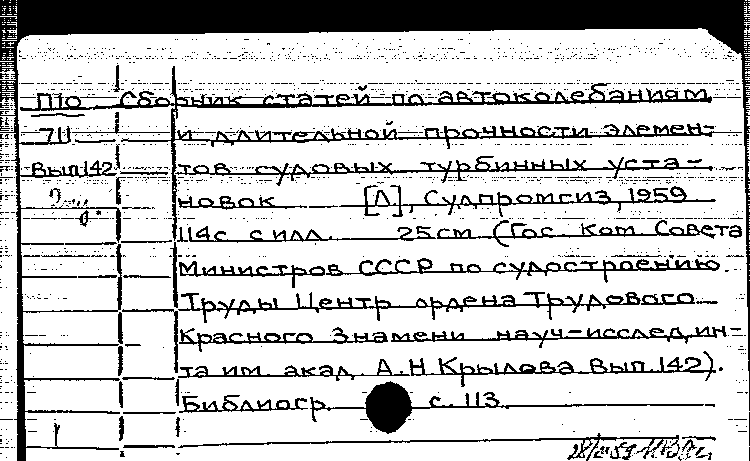 П10 Сборник статей по автоколебаниям
711 и длительной прочности элемен-
Вып.142 тов судовых турбинных уста-
новок [Л], Судпромгиз, 1959
114с с илл. 25см (Гос. ком. Совета
Министров СССР по судостроению.
Труды Центр ордена Трудового
Красного Знамени науч-исслед. ин-
та им. акад. А.Н Крылова Вып.142).
Библиогр. с. 113.